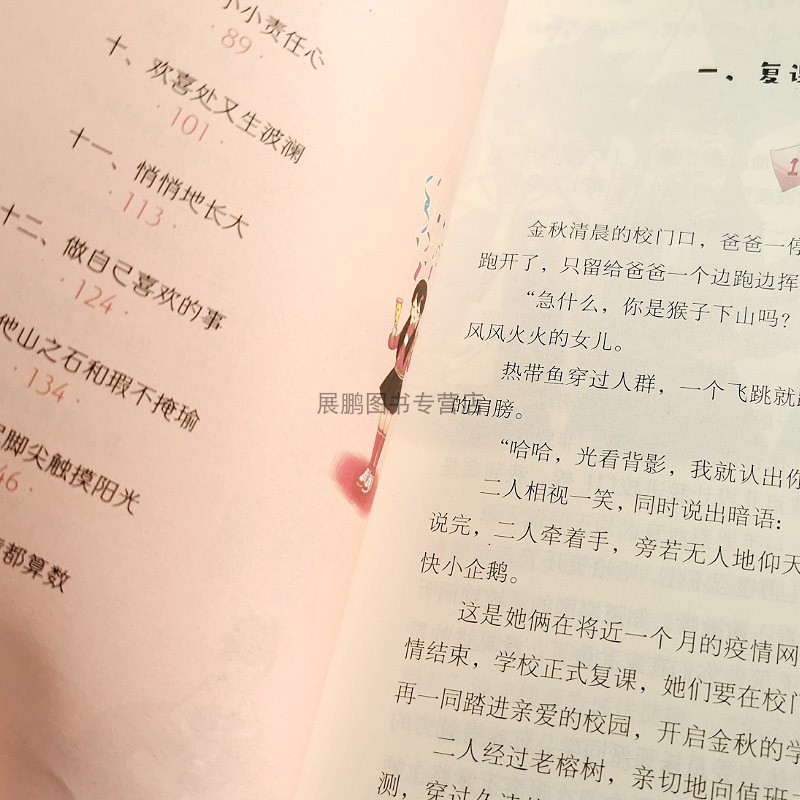 小小责任心
·89·
十、欢喜处又生波澜
·101·
十一、悄悄地长大
·113·
十二、做自己喜欢的事
·124·
他山之石和瑕不掩瑜
·134·
脚尖触摸阳光
46·
都算数
展鹏图书专营店
一、复课
1
金秋清晨的校门口，爸爸一停
跑开了，只留给爸爸一个边跑边挥
“急什么，你是猴子下山吗？
风风火火的女儿。
热带鱼穿过人群，一个飞跳就
的肩膀。
“哈哈，光看背影，我就认出你
二人相视一笑，同时说出暗语：
说完，二人牵着手，旁若无人地仰天
快小企鹅。
这是她俩在将近一个月的疫情网
情结束，学校正式复课，她们要在校门
再一同踏进亲爱的校园，开启金秋的学
二人经过老榕树，亲切地向值班
测，穿过